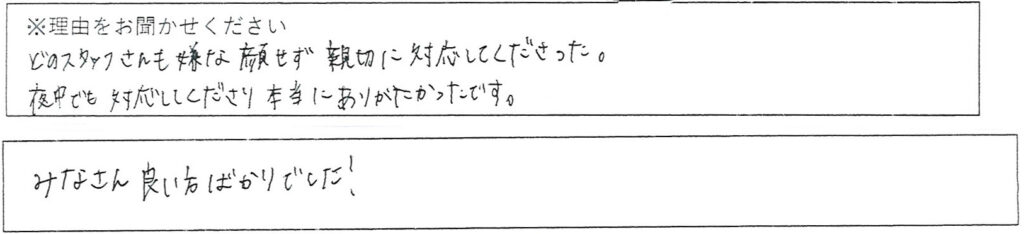 ※理由をお聞かせください
どのスタッフさんも嫌な顔せず 親切に対応してくださった。
夜中でも対応してくださり本当にありがたかったです。
みなさん良い方ばかりでした!